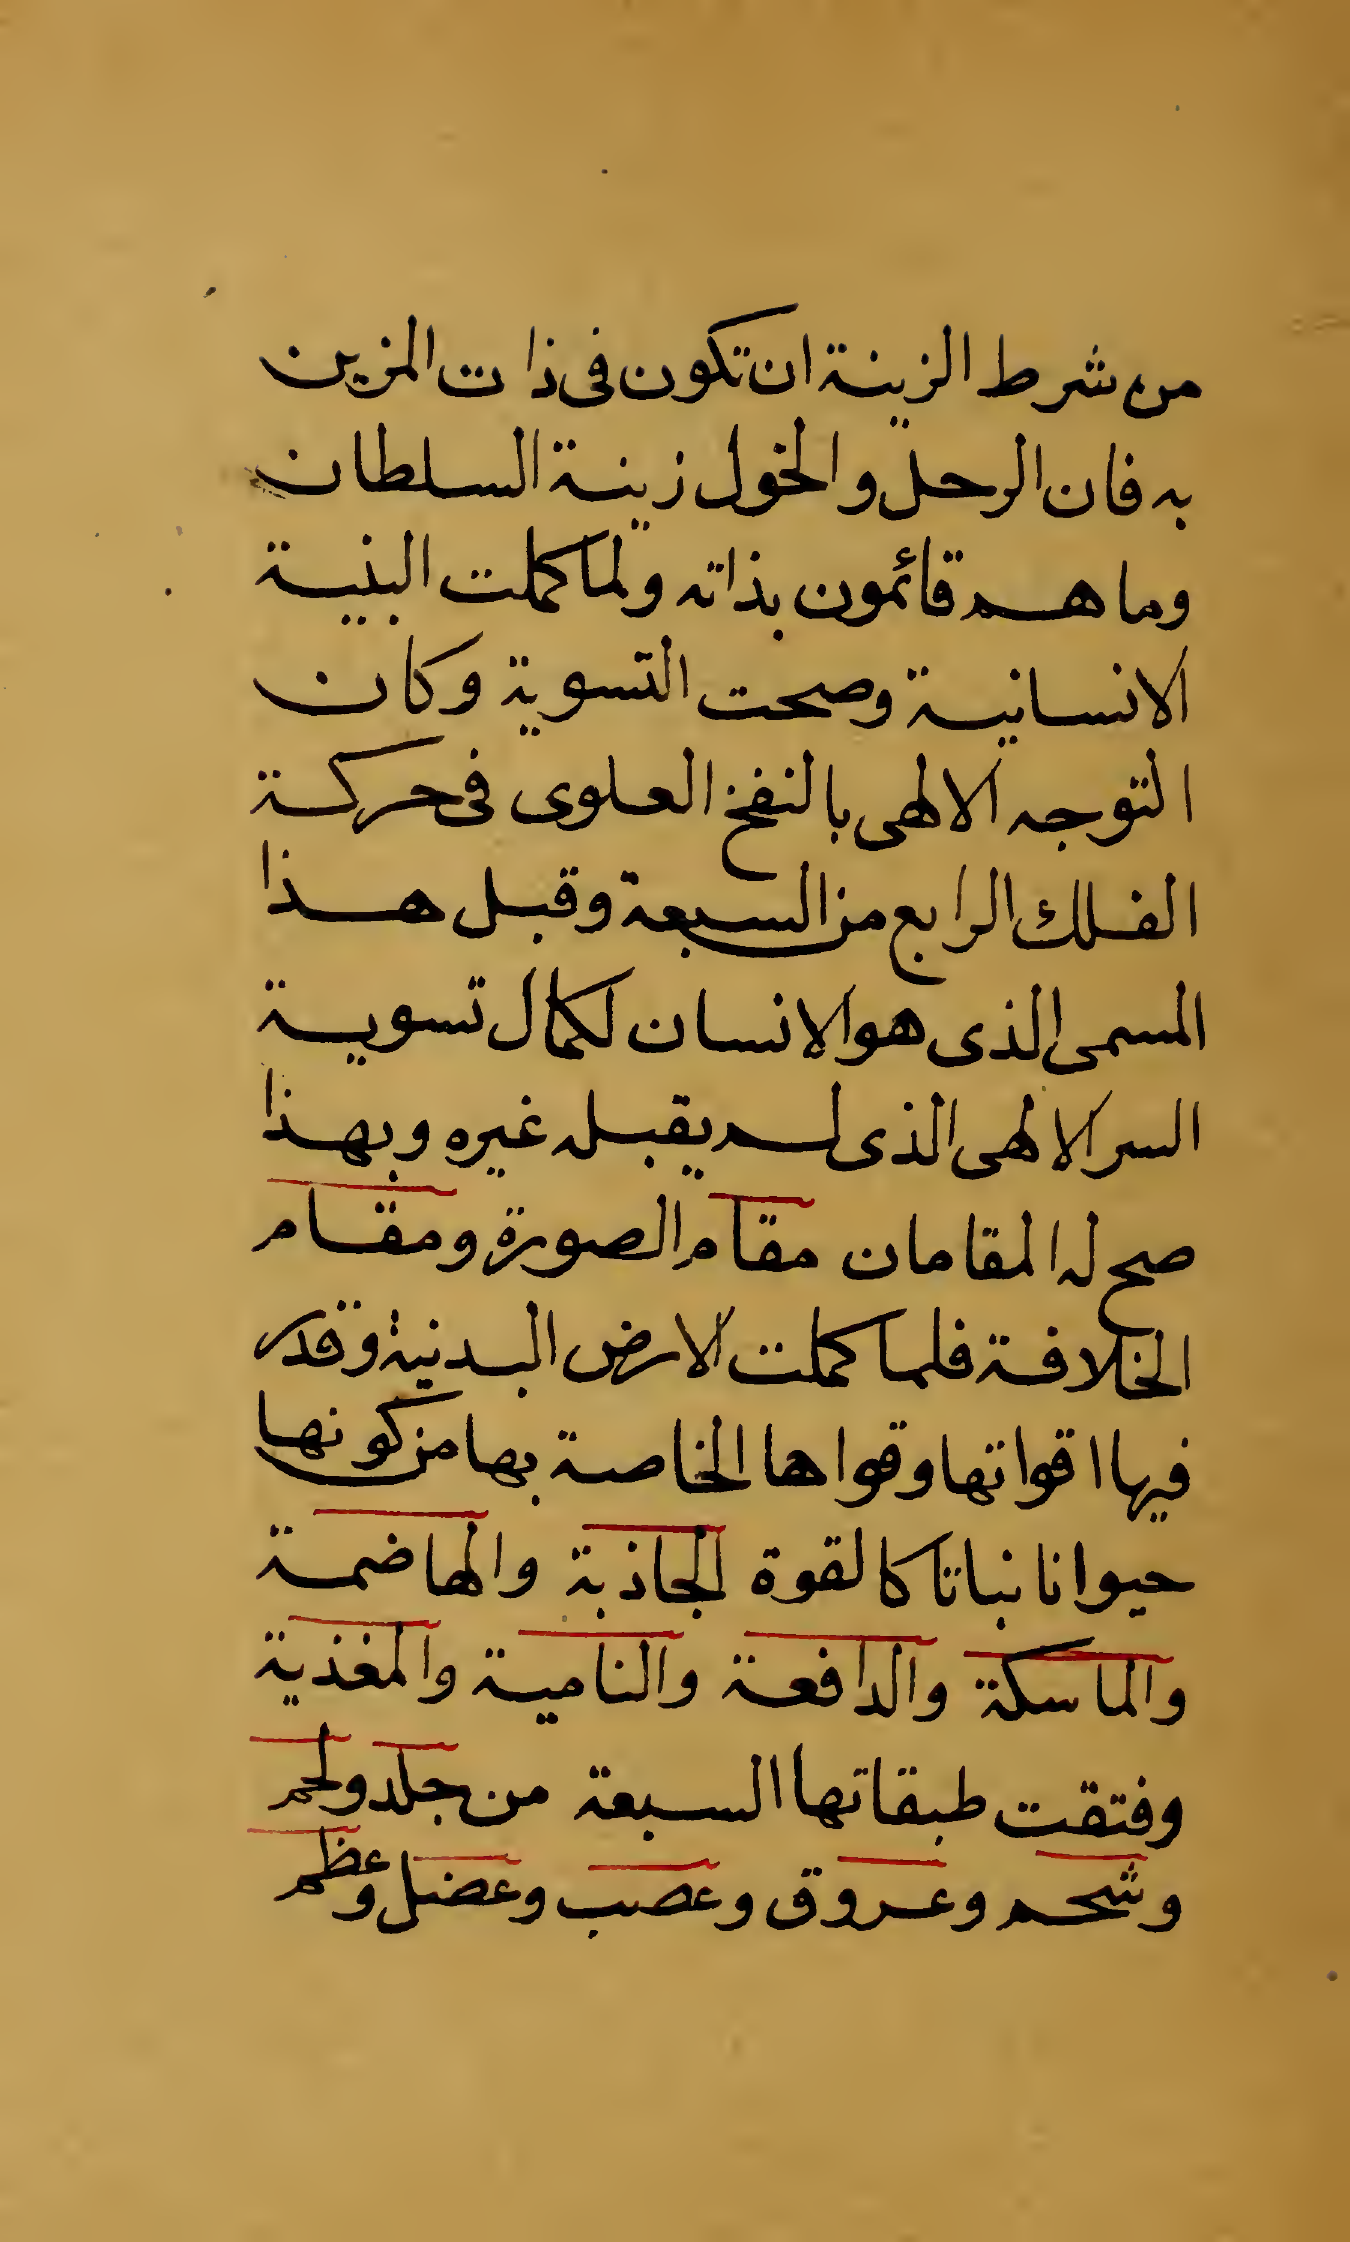 من شرط الزينة ان تكون فى ذات المزين
به فان الرحل والخول زينة السلطان
وما هم قائمون بذاته ولما كملت البنية
الانسانية وصحت التسوية وكان
التوجه الالهى بالنفخ العلوى فى حركة
الفلك الرابع من السبعة وقبل هذا
المسمى الذى هو الانسان لكمال تسوية
السر الالهى الذى لم يقبله غيره وبهذا
صح له المقامان مقام الصورة ومقام
الخلافة فلما كملت الارض البدنية وقدر
فيها اقواتها وقواها الخاصة بها من كونها
حيوانا نباتا كالقوة الجاذبة والهاضمة
والماسكة والدافعة والنامية والمغذية
وفتقت طبقاتها السبعة من جلد ولحم
وشحم وعروق وعصب وعضل وعظم